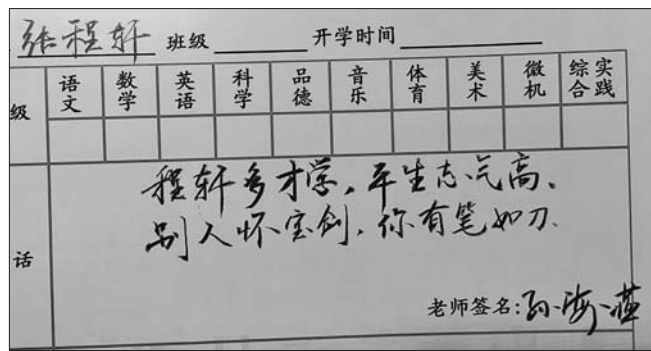 张程轩 班级 开学时间
级 语文 数学 英语 科学 品德 音乐 体育 美术 微机 综合实践
程轩多才学，平生志气高、
别人怀宝剑，你有笔如刀.
话
老师签名:孙海燕